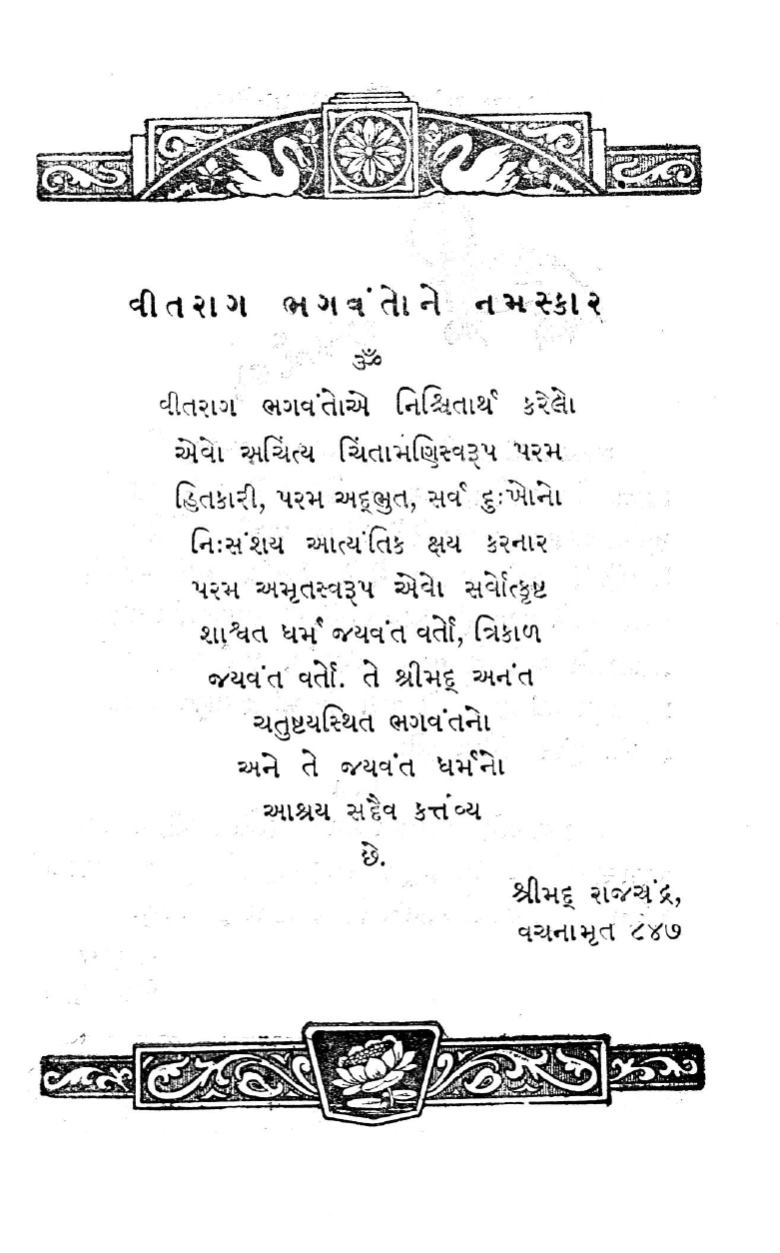 વીતરાગ ભગવંતોને નમસ્કાર
ૐ
વીતરાગ ભગવંતોએ નિશ્ચિતાર્થ કરેલો
એવો અચિંત્ય ચિંતામણિસ્વરૂપ પરમ
હિતકારી, પરમ અદ્ભુત, સર્વ દુઃખોનો
નિઃસંશય આત્યંતિક ક્ષય કરનાર
પરમ અમૃતસ્વરૂપ એવો સર્વોત્કૃષ્ટ
શાશ્વત ધર્મ જયવંત વર્તો, ત્રિકાળ
જયવંત વર્તો. તે શ્રીમદ્ અનંત
ચતુષ્ટયસ્થિત ભગવંતનો
અને તે જયવંત ધર્મનો
આશ્રય સદૈવ કર્ત્તવ્ય
છે.
શ્રીમદ્ રાજચંદ્ર,
વચનામૃત ૮૪૭